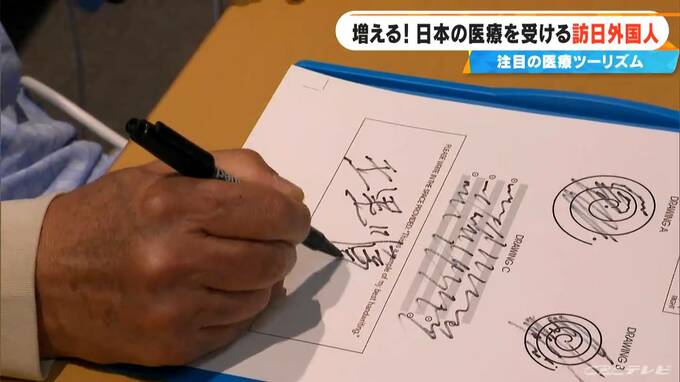 増える!日本の医療を受ける訪日外国人
注目の医療ツーリズム
PLEASE WRITE IN THE SPACE PROVIDED: "This
sample of my best handwriting"
DRAWING C
DRAWING A
DRAWING B
RIGHT